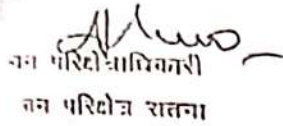 वन परिक्षेत्राधिकारी
वन परिक्षेत्र सतना